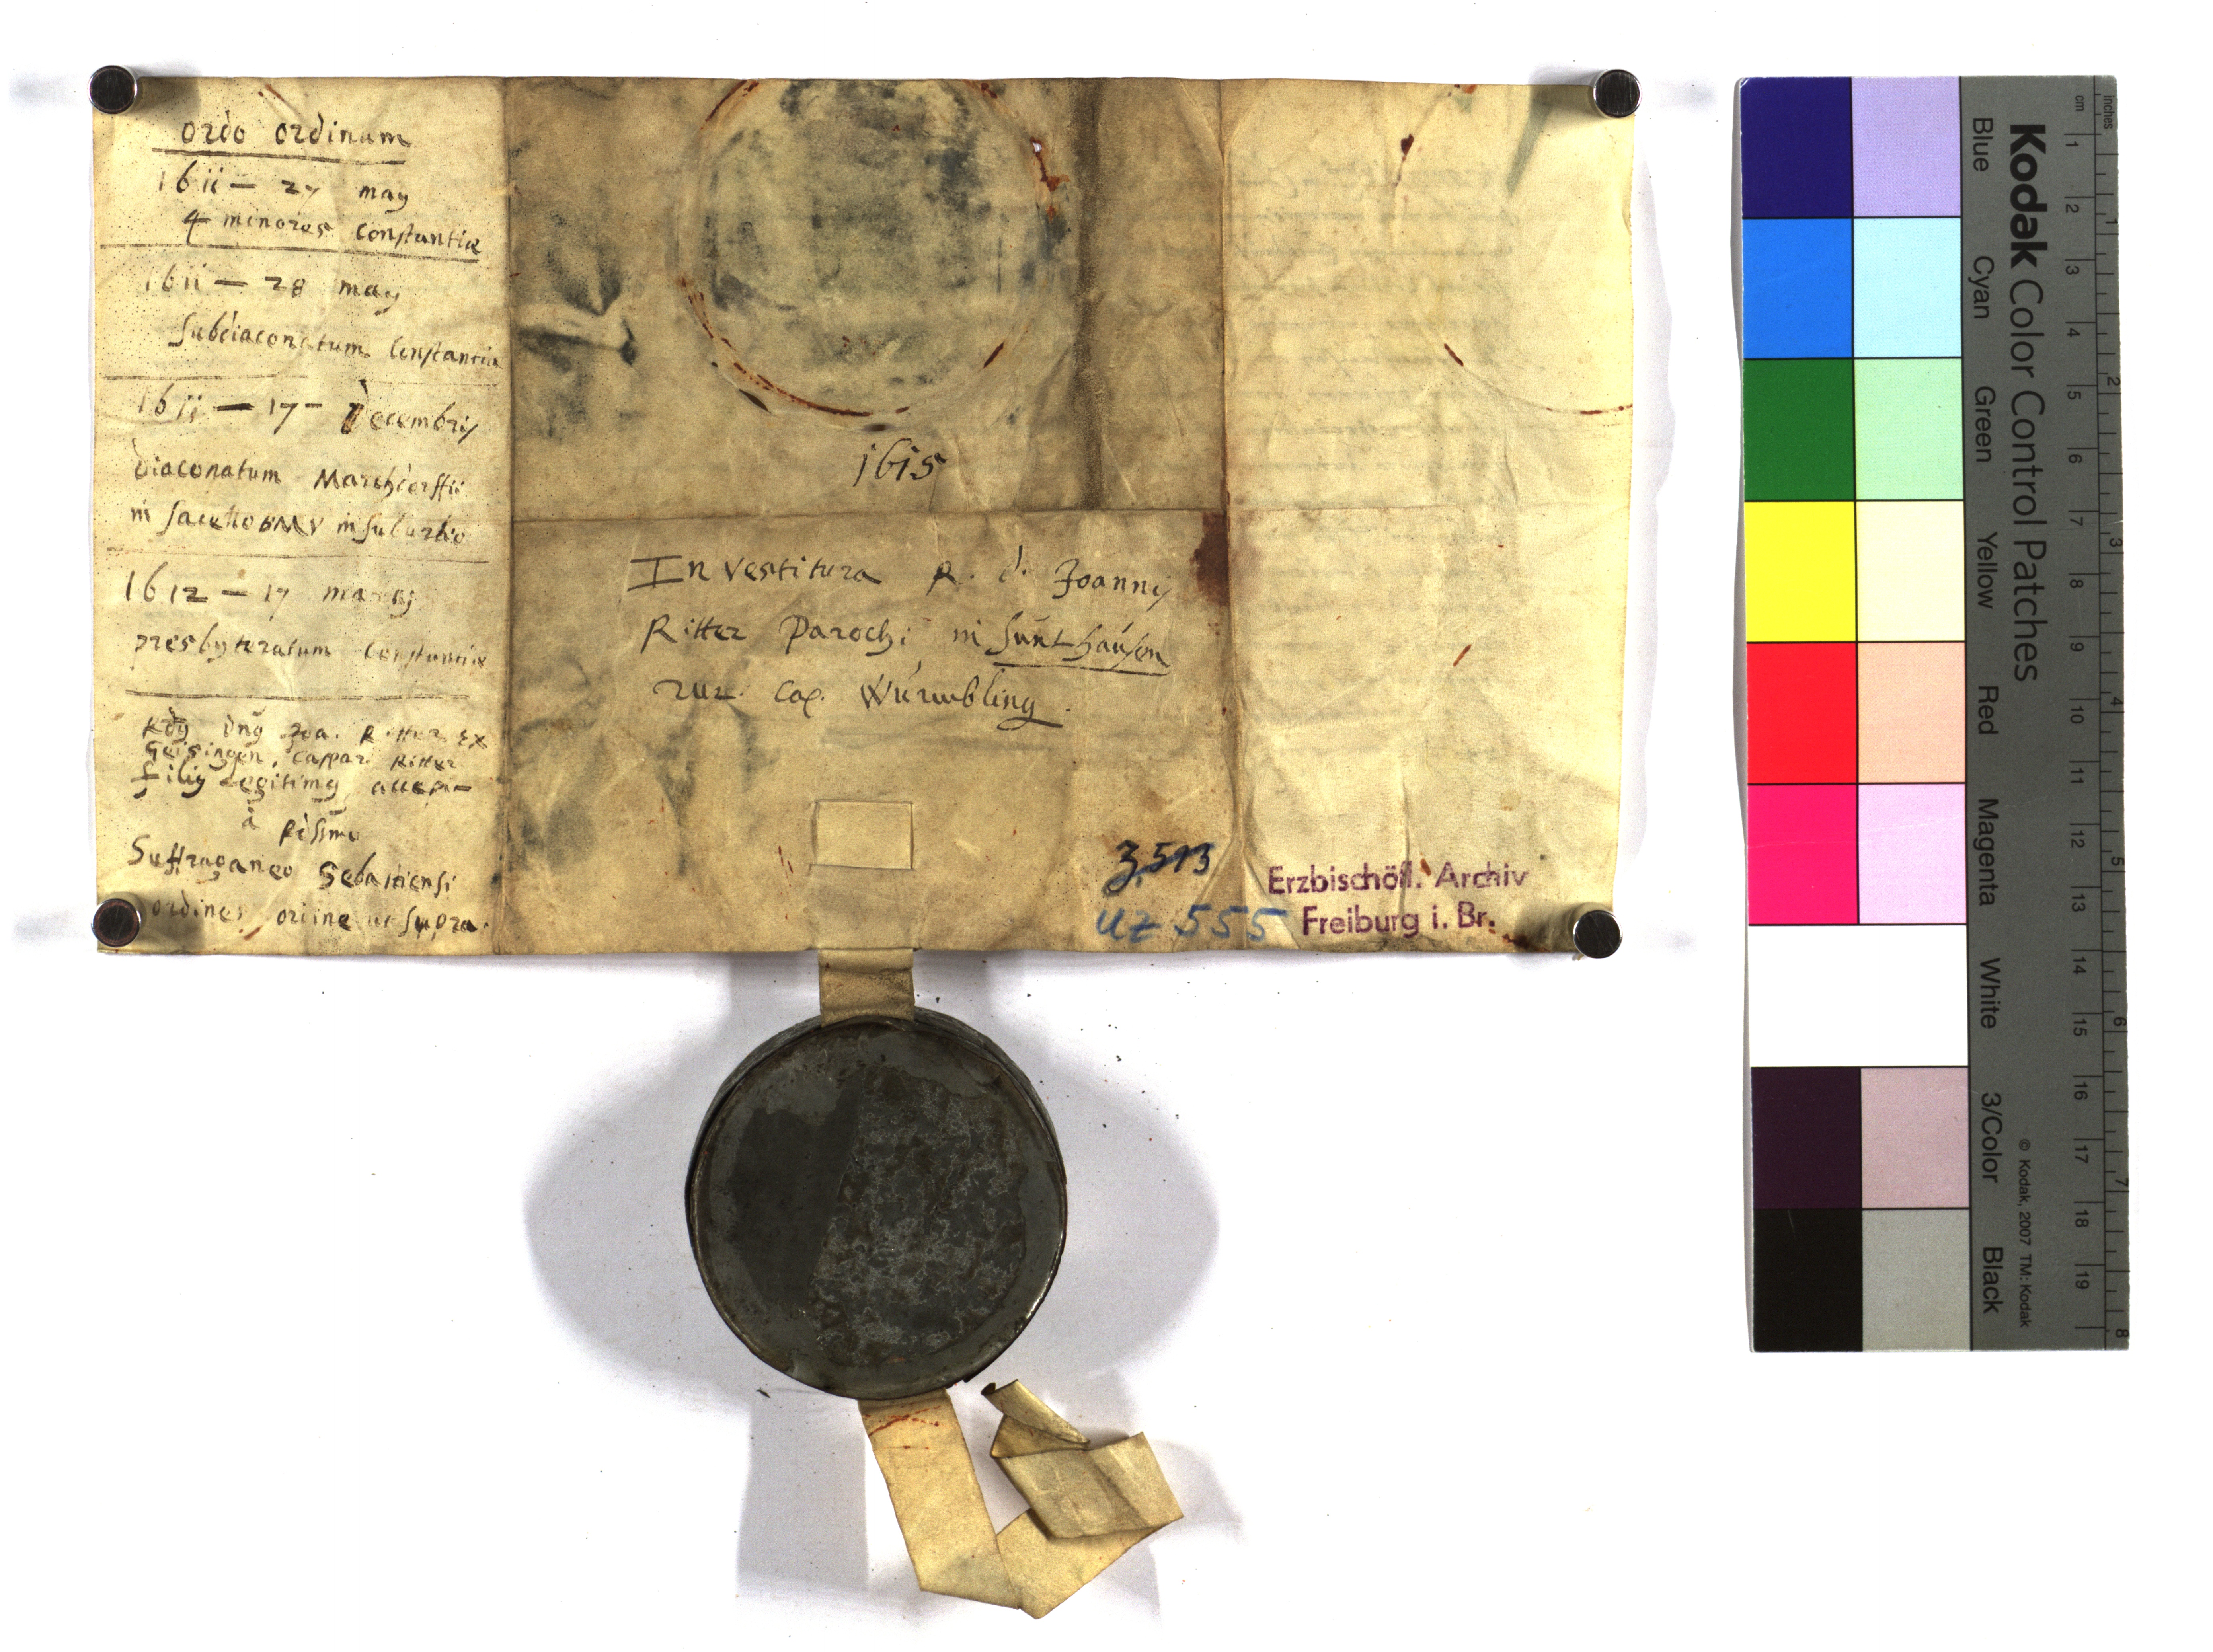 ordo ordinum
1611 — 27 may
4 minores Constantiæ
1611 — 28 may
Subdiaconatum Constantiæ
1611 — 17 - Decembris
diaconatum Marchdorffii
in sacello BMV in suburbio
1612 — 17 martis
presbyteratum Constantiæ
Joa. Ritter Ex
Geisingen, Caspar Ritter
filig Legitimg accepi-
à
Suffraganeo Sebastensi
ordines ut supra.
1615
Investitura R. d. Joannis
Ritter Parochi in Sunthausen
rur. Cap. Wurmbling.
3.513
UZ 555
Erzbischöfl. Archiv
Freiburg i. Br.
Kodak Color Control Patches
Blue Cyan Green Yellow Red Magenta White 3/Color Black
© Kodak, 2007 TM: Kodak
cm 1 2 3 4 5 6 7 8 9 10 11 12 13 14 15 16 17 18 19
inches 1 2 3 4 5 6 7 8